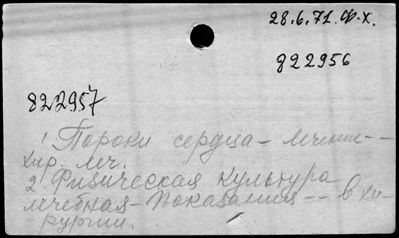 28.6.71.Ф.Х.
822956
822957
1 Пороки сердца – лечение –
хир. леч.
2 Физическая культура
лечебная – Показания – – в хи-
рургии.